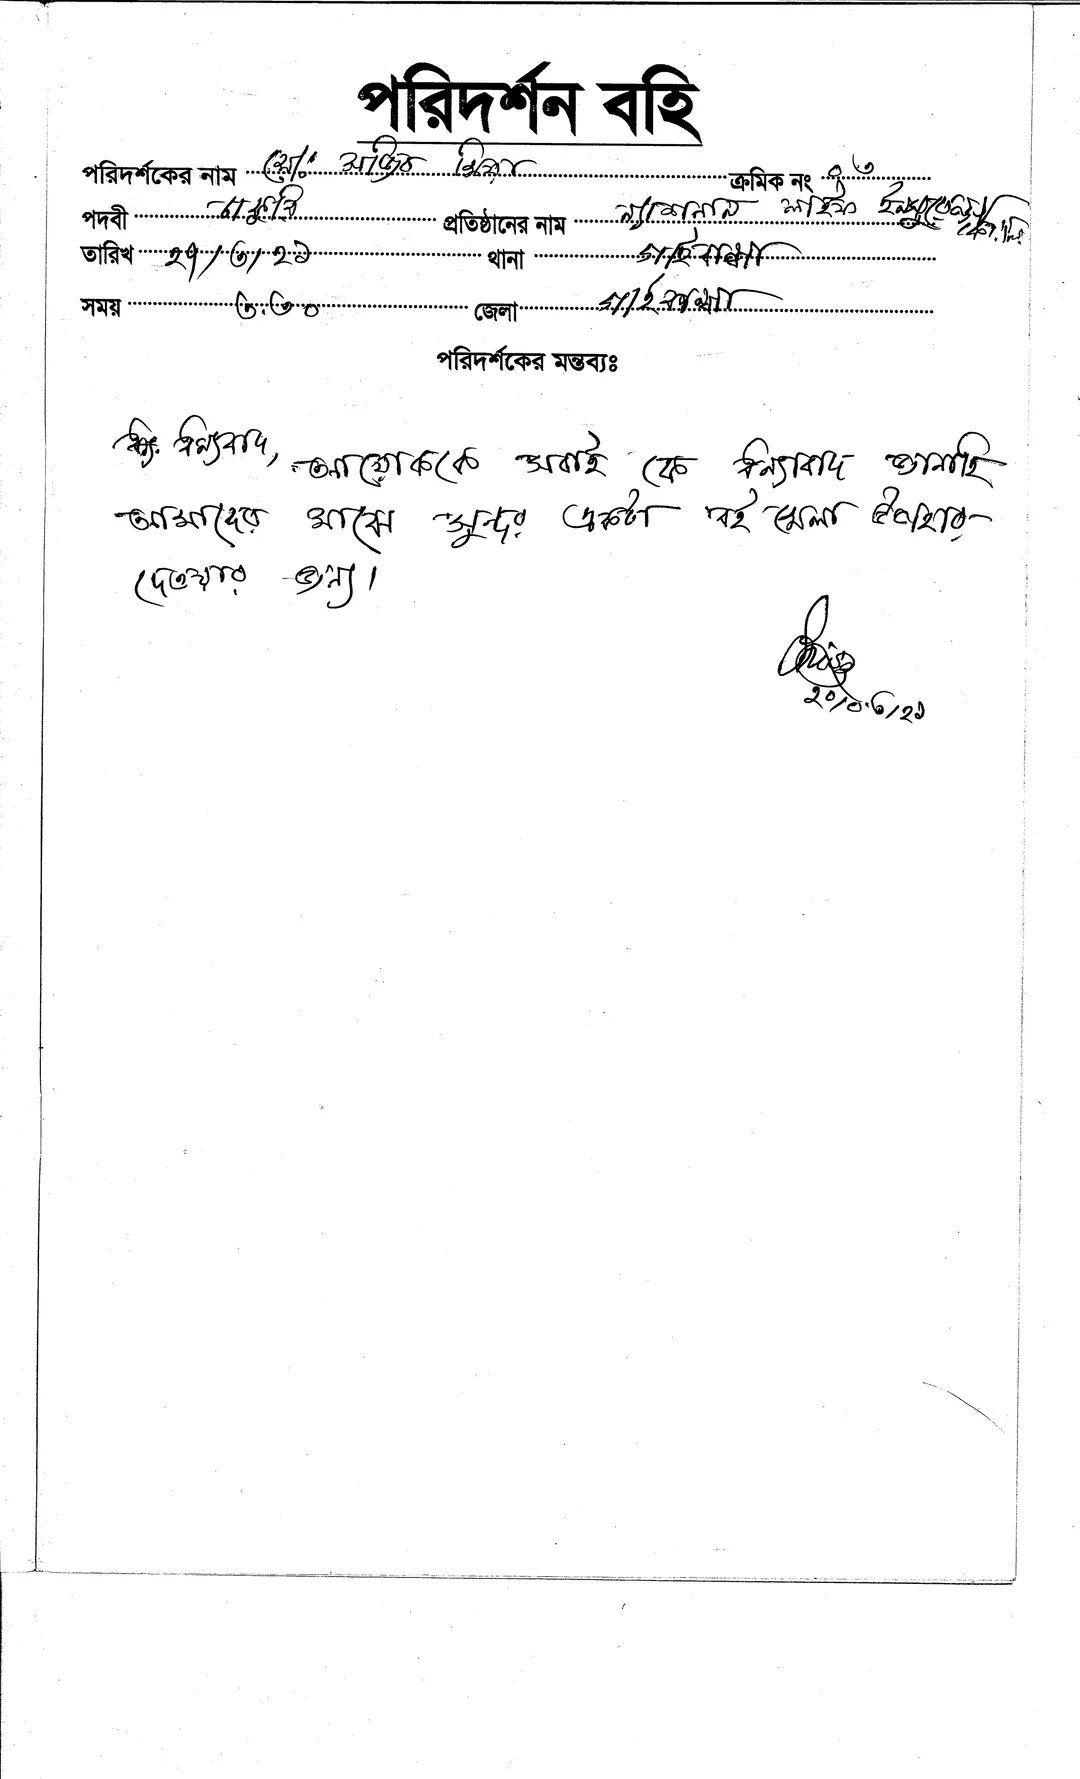 পরিদর্শন বহি
পরিদর্শকের নাম মোঃ মিয়া ক্রমিক নং ৭৩
পদবী চাকুরি প্রতিষ্ঠানের নাম ন্যাশনাল লাইফ ইনসুরেন্স কোং লিঃ
তারিখ ২৭/৩/২১ থানা গাইবান্ধা
সময় ৩.৩০ জেলা গাইবান্ধা
পরিদর্শকের মন্তব্যঃ
ধন্যবাদ, সবাই কে ধন্যাবাদ জানাই
আমাদের মাঝে সুন্দর একটা বই মেলা উপহার
দেওয়ার জন্য।